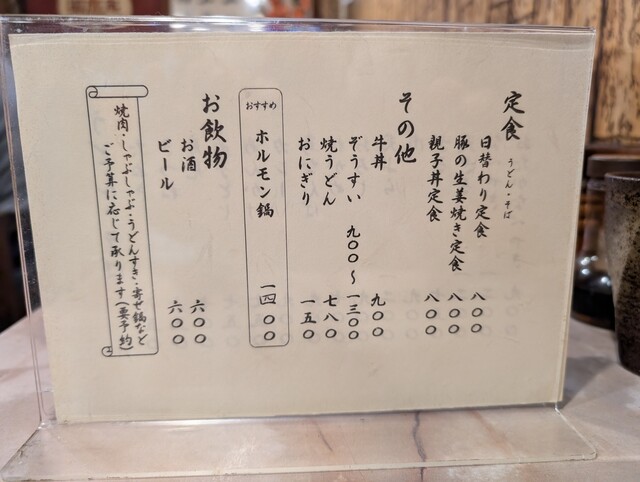 定食
うどん・そば
日替わり定食 八〇〇
豚の生姜焼き定食 八〇〇
親子丼定食 八〇〇
その他
牛丼 九〇〇
ぞうすい 九〇〇～一三〇〇
焼うどん 七八〇
おにぎり 一五〇
おすすめ
ホルモン鍋 一四〇〇
お飲物
お酒 六〇〇
ビール 六〇〇
焼肉・しゃぶしゃぶ・うどんすき・寄せ鍋など
ご予算に応じて承ります(要予約)